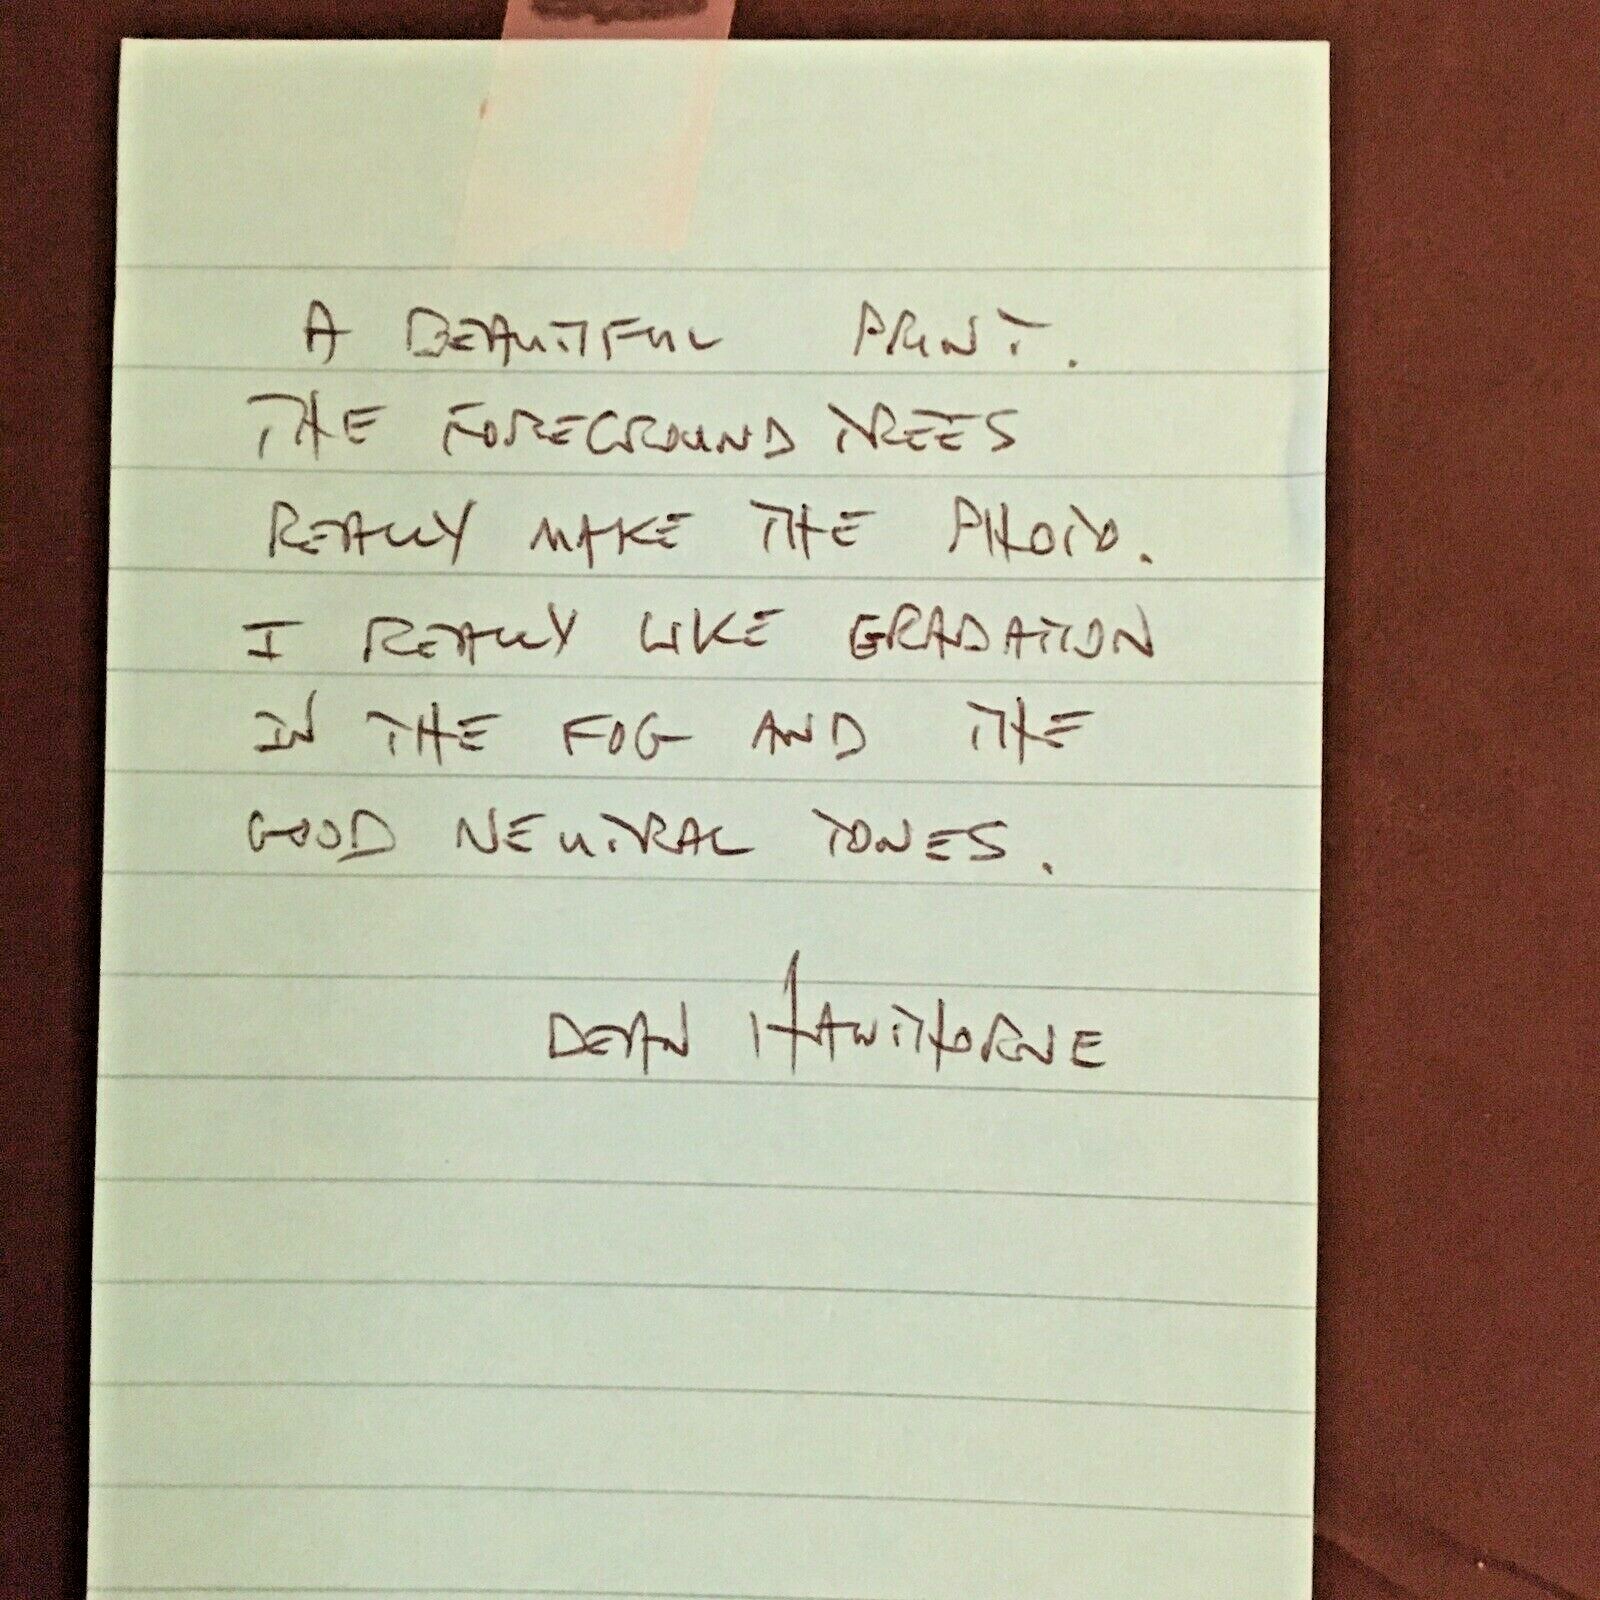 A BEAUTIFUL PRINT.
THE FOREGROUND TREES
REALLY MAKE THE PHOTO.
I REALLY LIKE GRADATION
IN THE FOG AND THE
GOOD NEUTRAL TONES.
DEAN HAWTHORNE